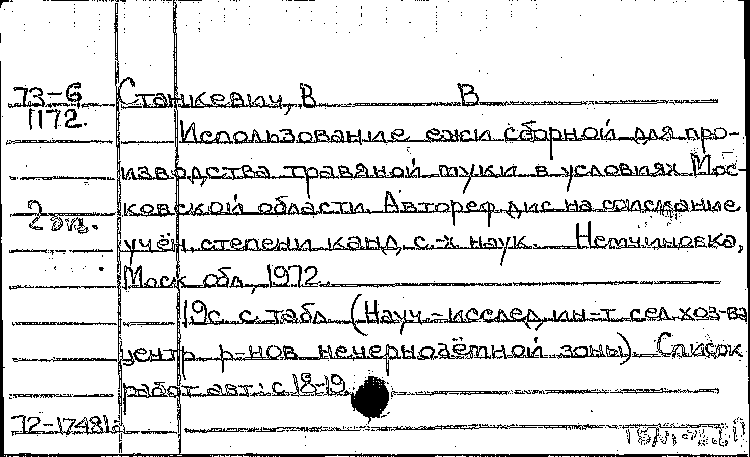 73-6 Станкевич, В В
1172.
Использование ежи сборной для про-
изводства травяной муки в условиях Мос-
2 эк. ковской области. Автореф дис на соискание
учён. степени канд. с.-х наук. Немчиновка,
Моск обл, 1972.
19с. с табл (Науч.-исслед. ин-т сел. хоз-ва
центр р-нов нечернозёмной зоны). Список
работ авт: с 18-19.
72-17481а